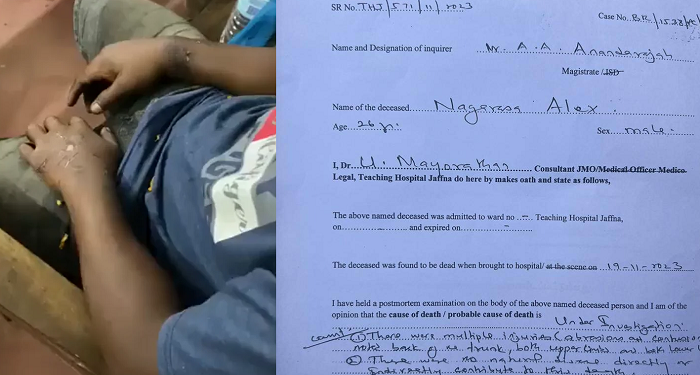 SR No. THJ/571/11/2023
Case No. BR/1528/PC
Name and Designation of inquirer Mr. A. A. Anandarajah
Magistrate /JSD
Name of the deceased Nagarasa Alex.
Age 26 yr. Sex male.
I, Dr. U. Mayorathan Consultant JMO/Medical Officer Medico-
Legal, Teaching Hospital Jaffna do here by makes oath and state as follows,
The above named deceased was admitted to ward no .–. Teaching Hospital Jaffna,
on..................... and expired on.......–.......
The deceased was found to be dead when brought to hospital/ at the scene on 19-11-2023
I have held a postmortem examination on the body of the above named deceased person and I am of the
opinion that the cause of death / probable cause of death is Under Investigation.
① There were multiple injuries (abrasions and contusions
back of the trunk, both upper limbs and both lower
② There were no natural disease directly or
indirectly contribute to this death.